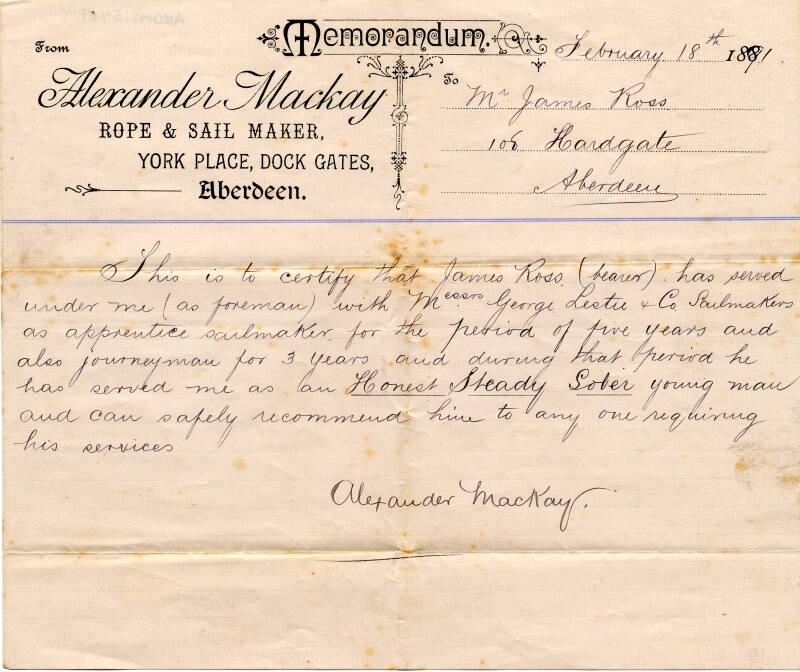 Memorandum.
From
February 18th 1891
Alexander Mackay
To
Mr James Ross
ROPE & SAIL MAKER,
106 Hardgate
YORK PLACE, DOCK GATES,
Aberdeen
Aberdeen.
This is to certify that James Ross (bearer) has served
under me (as foreman) with Messrs George Leslie & Co. Sailmakers
as apprentice sailmaker for the period of five years and
also journeyman for 3 years and during that period he
has served me as an Honest Steady Sober young man
and can safely recommend him to any one requiring
his services
Alexander MacKay.